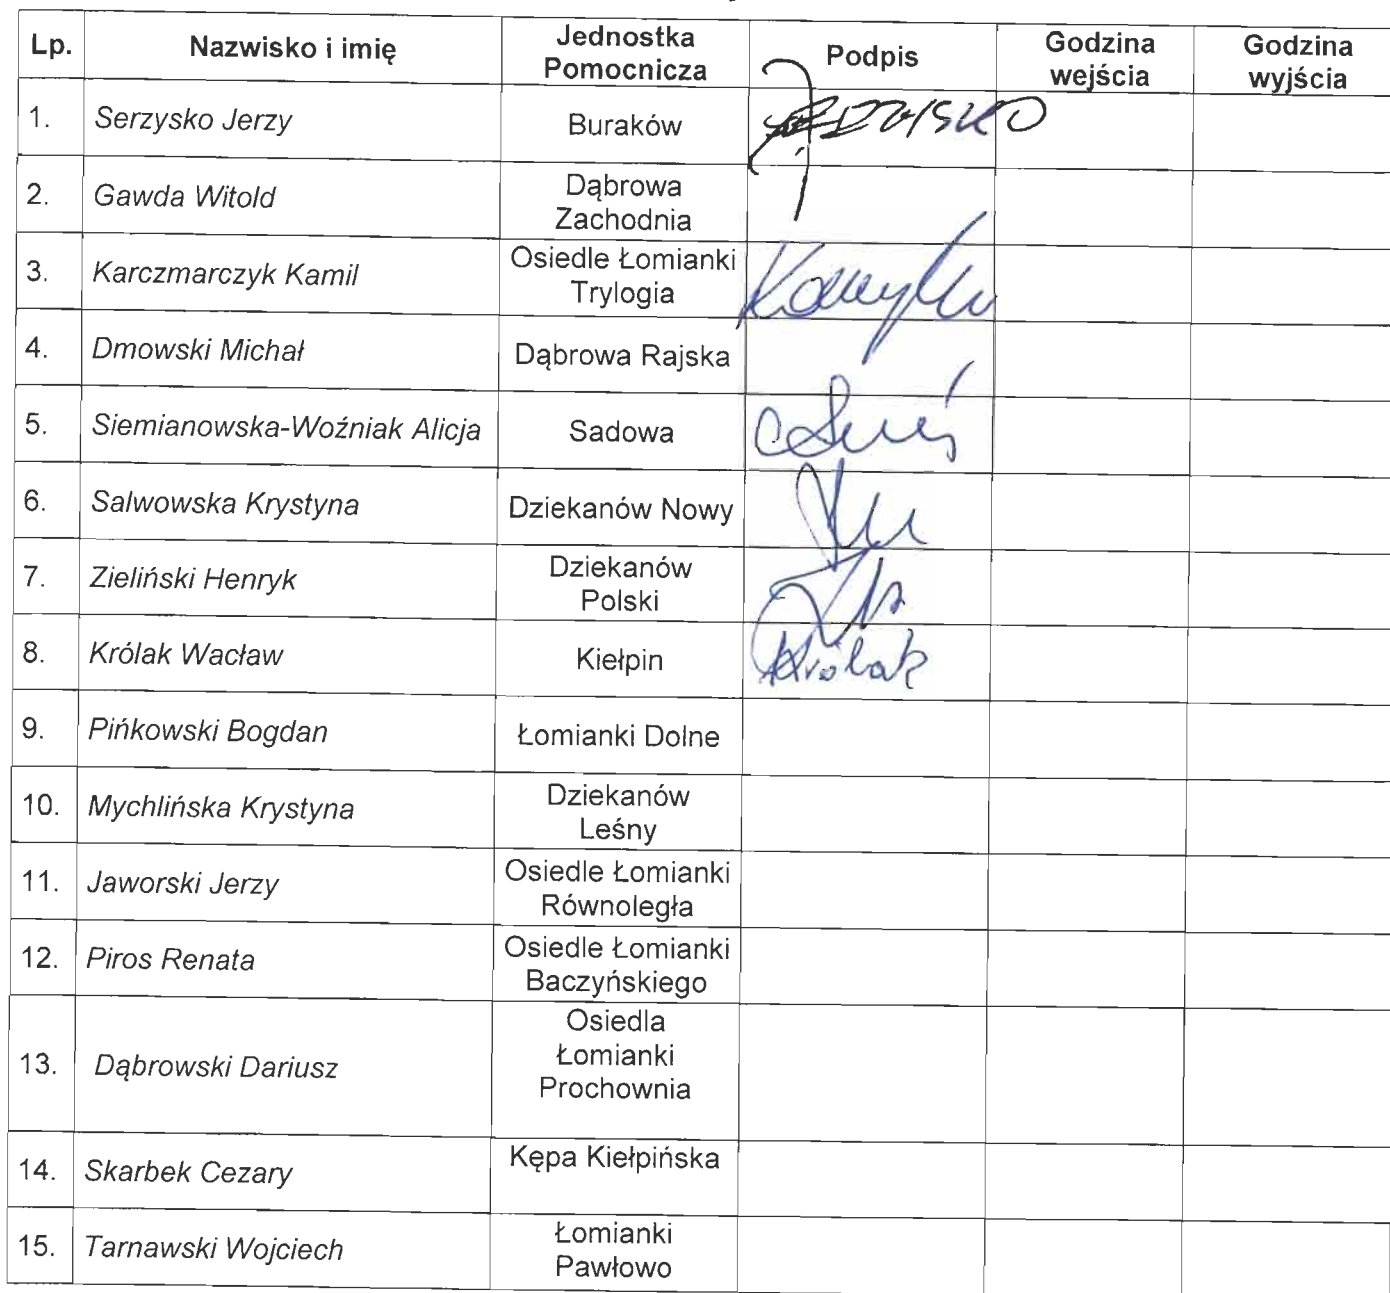 Lp. Nazwisko i imię Jednostka Pomocnicza Podpis Godzina wejścia Godzina wyjścia
1. Serzysko Jerzy Buraków
2. Gawda Witold Dąbrowa Zachodnia
3. Karczmarczyk Kamil Osiedle Łomianki Trylogia
4. Dmowski Michał Dąbrowa Rajska
5. Siemianowska-Woźniak Alicja Sadowa
6. Salwowska Krystyna Dziekanów Nowy
7. Zieliński Henryk Dziekanów Polski
8. Królak Wacław Kiełpin Królak
9. Pińkowski Bogdan Łomianki Dolne
10. Mychlińska Krystyna Dziekanów Leśny
11. Jaworski Jerzy Osiedle Łomianki Równoległa
12. Piros Renata Osiedle Łomianki Baczyńskiego
13. Dąbrowski Dariusz Osiedla Łomianki Prochownia
14. Skarbek Cezary Kępa Kiełpińska
15. Tarnawski Wojciech Łomianki Pawłowo